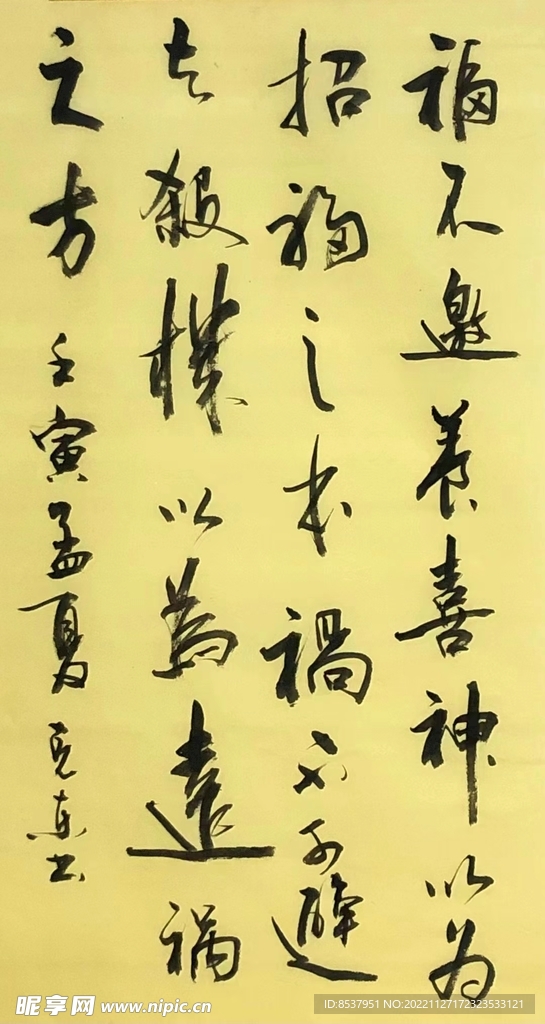 福不邀养喜神以为
招福之本祸不可避
去殺機以為遠祸
之方
壬寅孟夏克东书
昵享网 www.nipic.cn
ID:8537951 NO:20221127172323533121